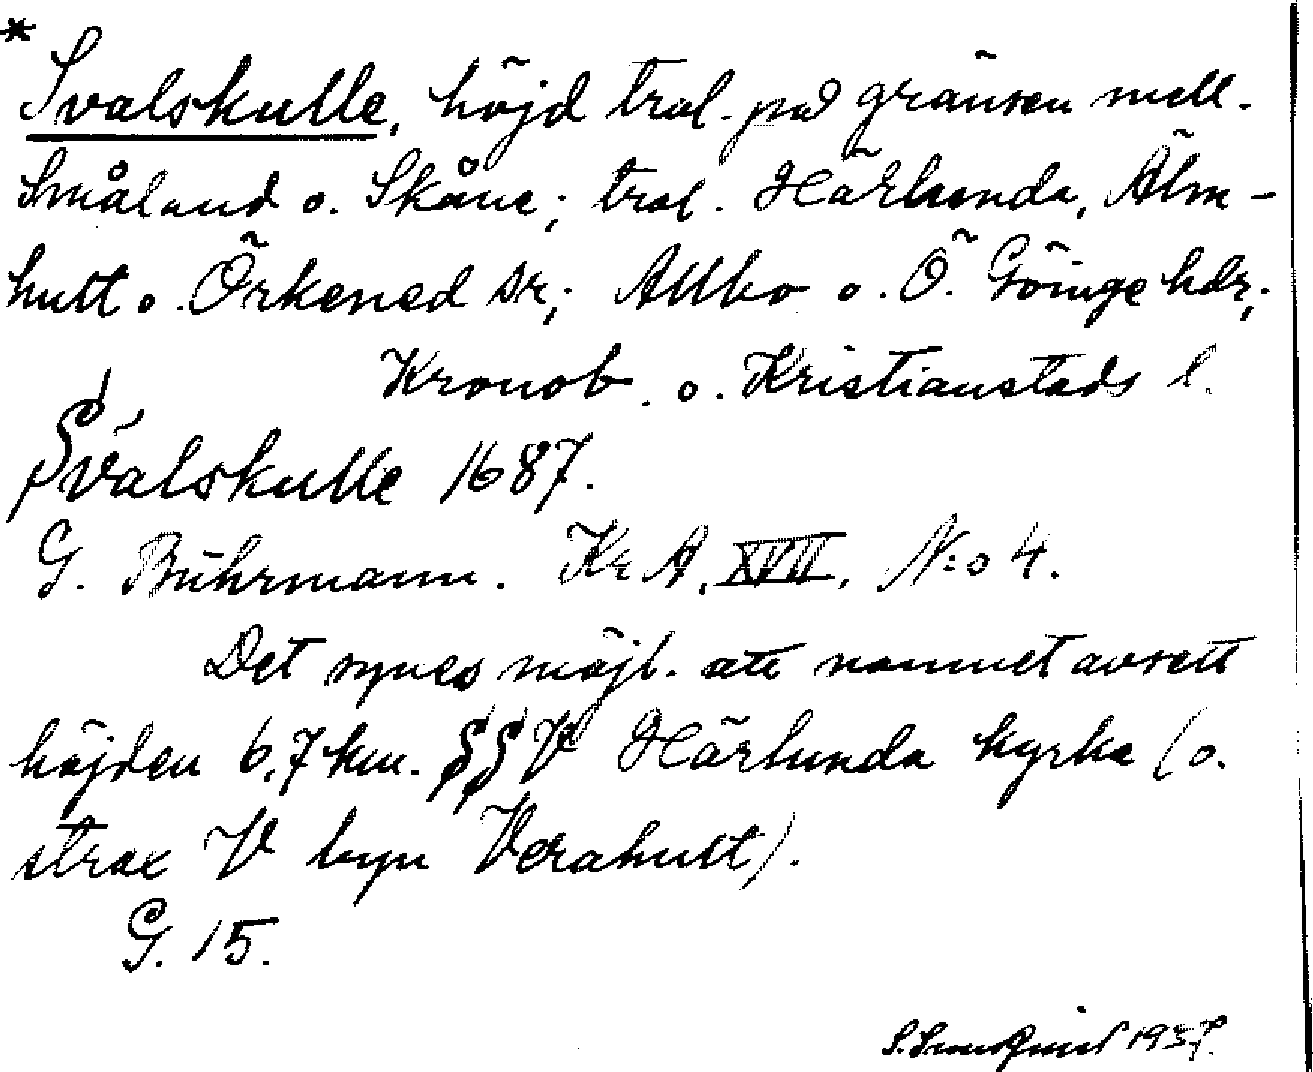 * Svalskulle, höjd trol. på gränsen mell.
Småland o. Skåne; trol. Härlunda, Älm-
hult o. Örkened sr; Allbo o. Ö. Göinge hdr;
Kronob. o. Kristianstads l.
Svalskulle 1687.
G. Buhrmann. Kr A. XVII, N:o 4.
Det synes möjl. att namnet avsett
höjden 6,7 km. SSV Härlunda kyrka (o.
strax V byn Verahult).
G. 15.
S. 1937.